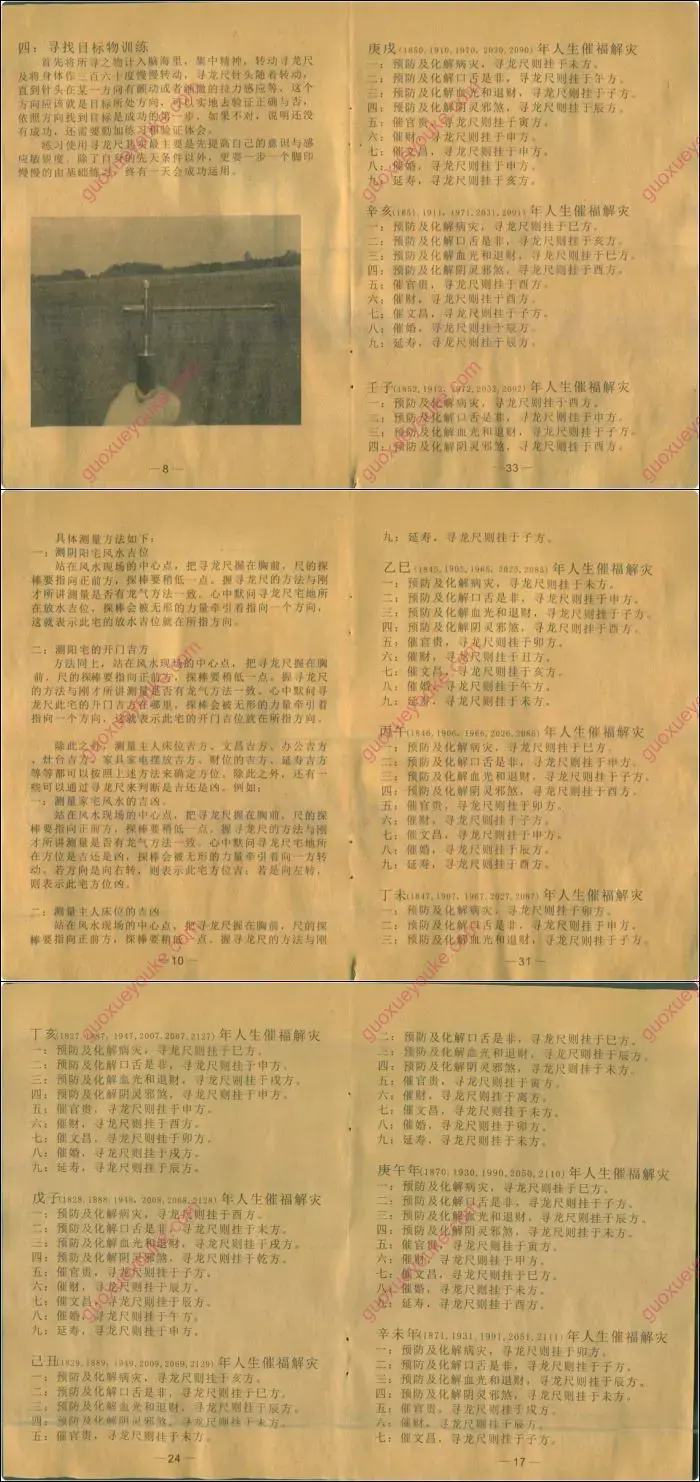 四：寻找目标物训练
首先将所寻之物计入脑海里，集中精神，转动寻龙尺
及将身体作三百六十度慢慢转动，寻龙尺针头随着转动，
直到针头在某一方向有颤动或者刺激的拉力感应等，这个
方向应该就是目标所处方向，可以实地去验证正确与否，
依照方向找到目标是成功的第一步，如果不对，说明还没
有成功，还需要勤加练习和验证体会。
练习使用寻龙尺其实最主要是先提高自己的意识与感
应敏锐度，除了自身的先天条件以外，更要一步一个脚印
慢慢的由基础练习，终有一天会成功运用。
—8—
庚戌(1850,1910,1970,2030,2090)年人生催福解灾
一：预防及化解病灾，寻龙尺则挂于未方。
二：预防及化解口舌是非，寻龙尺则挂于午方。
三：预防及化解血光和退财，寻龙尺则挂于子方。
四：预防及化解阴灵邪煞，寻龙尺则挂于辰方。
五：催官贵，寻龙尺则挂于寅方。
六：催财，寻龙尺则挂于申方。
七：催文昌，寻龙尺则挂于申方。
八：催婚，寻龙尺则挂于申方。
九：延寿，寻龙尺则挂于亥方。
辛亥(1851,1911,1971,2031,2091)年人生催福解灾
一：预防及化解病灾，寻龙尺则挂于巳方。
二：预防及化解口舌是非，寻龙尺则挂于亥方。
三：预防及化解血光和退财，寻龙尺则挂于巳方。
四：预防及化解阴灵邪煞，寻龙尺则挂于酉方。
五：催官贵，寻龙尺则挂于酉方。
六：催财，寻龙尺则挂于酉方。
七：催文昌，寻龙尺则挂于子方。
八：催婚，寻龙尺则挂于辰方。
九：延寿，寻龙尺则挂于辰方。
壬子(1852,1912,1972,2032,2092)年人生催福解灾
一：预防及化解病灾，寻龙尺则挂于酉方。
二：预防及化解口舌是非，寻龙尺则挂于申方。
三：预防及化解血光和退财，寻龙尺则挂于子方。
四：预防及化解阴灵邪煞，寻龙尺则挂于酉方。
—33—
具体测量方法如下：
一：测阴阳宅风水吉位
站在风水现场的中心点，把寻龙尺握在胸前，尺的探
棒要指向正前方，探棒要稍低一点。握寻龙尺的方法与刚
才所讲测量是否有龙气方法一致。心中默问寻龙尺宅地所
在放水吉位，探棒会被无形的力量牵引着指向一个方向，
这就表示此宅的放水吉位就在所指方向。
二：测阳宅的开门吉方
方法同上，站在风水现场的中心点，把寻龙尺握在胸
前，尺的探棒要指向正前方，探棒要稍低一点。握寻龙尺
的方法与刚才所讲测量是否有龙气方法一致。心中默问寻
龙尺此宅的开门吉方在哪里，探棒会被无形的力量牵引着
指向一个方向，这就表示此宅的开门吉位就在所指方向。
除此之外，测量主人床位吉方、文昌吉方、办公吉方
、灶台吉方、家具家电摆放吉方、财位的吉方、延寿吉方
等等都可以按照上述方法来确定方位。除此之外，还有一
些可以通过寻龙尺来判断是吉还是凶。例如：
一：测量家宅风水的吉凶。
站在风水现场的中心点，把寻龙尺握在胸前，尺的探
棒要指向正前方，探棒要稍低一点。握寻龙尺的方法与刚
才所讲测量是否有龙气方法一致。心中默问寻龙尺宅地所
在方位是吉还是凶，探棒会被无形的力量牵引着向一方转
动。若方向是向右转，则表示此宅方位吉；若是向左转，
则表示此宅方位凶。
二：测量主人床位的吉凶
站在风水现场的中心点，把寻龙尺握在胸前，尺的探
棒要指向正前方，探棒要稍低一点。握寻龙尺的方法与刚
—10—
九：延寿，寻龙尺则挂于子方。
乙巳(1845,1905,1965,2025,2085)年人生催福解灾
一：预防及化解病灾，寻龙尺则挂于未方。
二：预防及化解口舌是非，寻龙尺则挂于申方。
三：预防及化解血光和退财，寻龙尺则挂于子方。
四：预防及化解阴灵邪煞，寻龙尺则挂于酉方。
五：催官贵，寻龙尺则挂于卯方。
六：催财，寻龙尺则挂于丑方。
七：催文昌，寻龙尺则挂于亥方。
八：催婚，寻龙尺则挂于午方。
九：延寿，寻龙尺则挂于未方。
丙午(1846,1906,1966,2026,2086)年人生催福解灾
一：预防及化解病灾，寻龙尺则挂于巳方。
二：预防及化解口舌是非，寻龙尺则挂于申方。
三：预防及化解血光和退财，寻龙尺则挂于子方。
四：预防及化解阴灵邪煞，寻龙尺则挂于酉方。
五：催官贵，寻龙尺则挂于卯方。
六：催财，寻龙尺则挂于子方。
七：催文昌，寻龙尺则挂于申方。
八：催婚，寻龙尺则挂于辰方。
九：延寿，寻龙尺则挂于酉方。
丁未(1847,1907,1967,2027,2087)年人生催福解灾
一：预防及化解病灾，寻龙尺则挂于卯方。
二：预防及化解口舌是非，寻龙尺则挂于申方。
三：预防及化解血光和退财，寻龙尺则挂于子方。
—31—
丁亥(1827,1887,1947,2007,2067,2127)年人生催福解灾
一：预防及化解病灾，寻龙尺则挂于巳方。
二：预防及化解口舌是非，寻龙尺则挂于申方。
三：预防及化解血光和退财，寻龙尺则挂于戌方。
四：预防及化解阴灵邪煞，寻龙尺则挂于申方。
五：催官贵，寻龙尺则挂于申方。
六：催财，寻龙尺则挂于酉方。
七：催文昌，寻龙尺则挂于卯方。
八：催婚，寻龙尺则挂于戌方。
九：延寿，寻龙尺则挂于辰方。
戊子(1828,1888,1948,2008,2068,2128)年人生催福解灾
一：预防及化解病灾，寻龙尺则挂于酉方。
二：预防及化解口舌是非，寻龙尺则挂于未方。
三：预防及化解血光和退财，寻龙尺则挂于戌方。
四：预防及化解阴灵邪煞，寻龙尺则挂于乾方。
五：催官贵，寻龙尺则挂于子方。
六：催财，寻龙尺则挂于辰方。
七：催文昌，寻龙尺则挂于辰方。
八：催婚，寻龙尺则挂于午方。
九：延寿，寻龙尺则挂于申方。
己丑(1829,1889,1949,2009,2069,2129)年人生催福解灾
一：预防及化解病灾，寻龙尺则挂于亥方。
二：预防及化解口舌是非，寻龙尺则挂于巳方。
三：预防及化解血光和退财，寻龙尺则挂于辰方。
四：预防及化解阴灵邪煞，寻龙尺则挂于未方。
五：催官贵，寻龙尺则挂于未方。
—24—
二：预防及化解口舌是非，寻龙尺则挂于子方。
三：预防及化解血光和退财，寻龙尺则挂于辰方。
四：预防及化解阴灵邪煞，寻龙尺则挂于未方。
五：催官贵，寻龙尺则挂于寅方。
六：催财，寻龙尺则挂于离方。
七：催文昌，寻龙尺则挂于未方。
八：催婚，寻龙尺则挂于卯方。
九：延寿，寻龙尺则挂于未方。
庚午年(1870,1930,1990,2050,2110)年人生催福解灾
一：预防及化解病灾，寻龙尺则挂于巳方。
二：预防及化解口舌是非，寻龙尺则挂于子方。
三：预防及化解血光和退财，寻龙尺则挂于辰方。
四：预防及化解阴灵邪煞，寻龙尺则挂于未方。
五：催官贵，寻龙尺则挂于寅方。
六：催财，寻龙尺则挂于甲方。
七：催文昌，寻龙尺则挂于巳方。
八：催婚，寻龙尺则挂于未方。
九：延寿，寻龙尺则挂于酉方。
辛未年(1871,1931,1991,2051,2111)年人生催福解灾
一：预防及化解病灾，寻龙尺则挂于卯方。
二：预防及化解口舌是非，寻龙尺则挂于子方。
三：预防及化解血光和退财，寻龙尺则挂于辰方。
四：预防及化解阴灵邪煞，寻龙尺则挂于未方。
五：催官贵，寻龙尺则挂于戌方。
六：催财，寻龙尺则挂于辰方。
七：催文昌，寻龙尺则挂于子方。
—17—
guoxueyouke.com